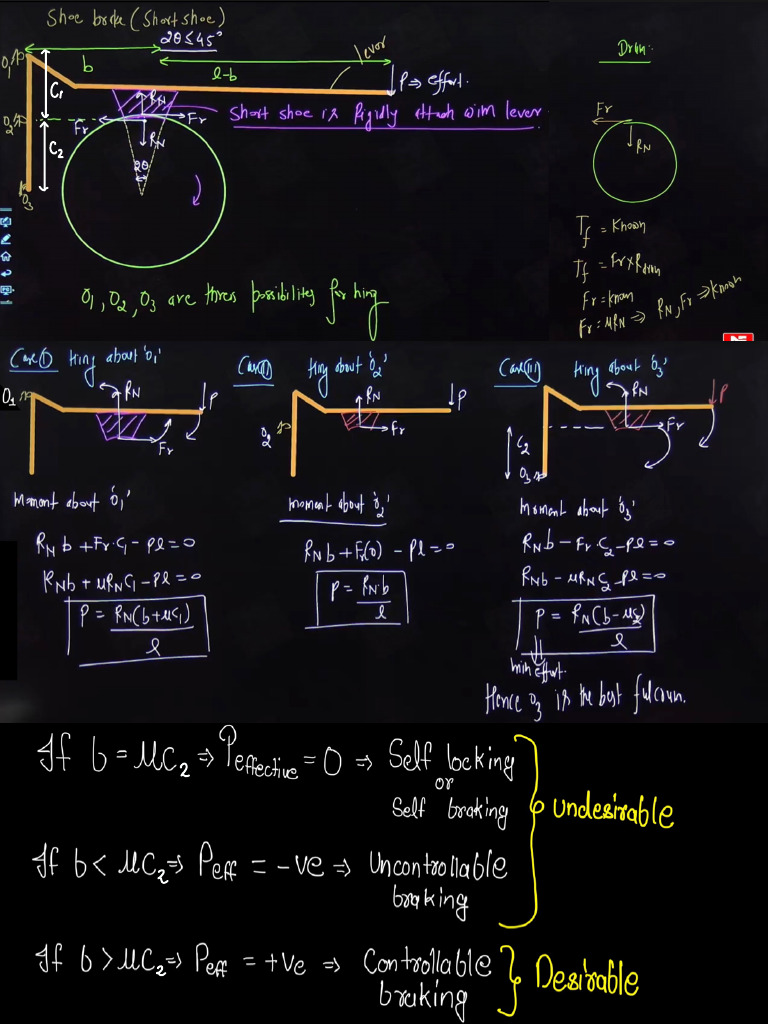 Shoe brake (Short shoe)
2θ ≤ 45°
lever
O₁
b
l-b
P ⇒ effort.
C₁
RN
Short shoe is rigidly attach with lever
O₂
Fr
Fr
RN
C₂
2θ
O₃
O₁, O₂, O₃ are three possibilities for hing
Drum
Fr
RN
Tf = Known
Tf = Fr × Rdrum
Fr = known
Fr = μRN ⇒ RN, Fr → known
Case(I) Hing about 'O₁'
O₁
RN
P
Fr
Moment about 'O₁'
RN b + Fr·C₁ - Pl = 0
RNb + μRNC₁ - Pl = 0
P = RN(b+μC₁)
l
Case(II) Hing about 'O₂'
RN
P
O₂
Fr
moment about 'O₂'
RN b + Fr(0) - Pl = 0
P = RN·b
l
Case(III) Hing about 'O₃'
RN
P
Fr
C₂
O₃
Moment about 'O₃'
RNb - Fr·C₂ - Pl = 0
RNb - μRNC₂ - Pl = 0
P = RN(b-μC₂)
l
min effort.
Hence O₃ is the best fulcrum.
If b = μC₂ ⇒ Peffective = 0 ⇒ Self locking
or
Self braking
undesirable
If b < μC₂ ⇒ Peff = -ve ⇒ Uncontrollable
braking
If b > μC₂ ⇒ Peff = +ve ⇒ Controllable
braking
Desirable